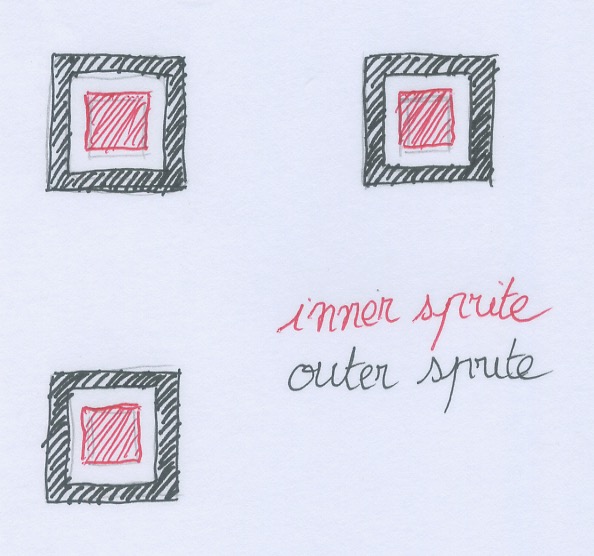 inner sprite
outer sprite